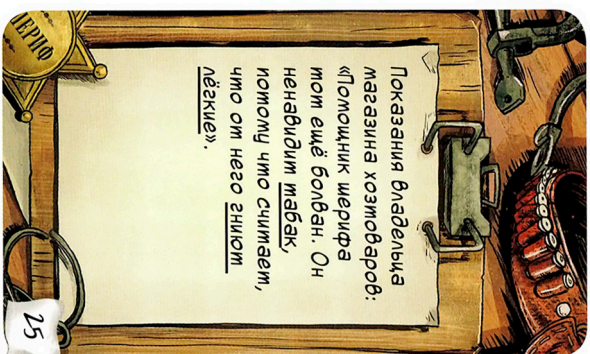 ШЕРИФ
Показания владельца
магазина хозтоваров:
«Помощник шерифа
тот ещё болван. Он
ненавидит табак,
потому что считает,
что от него гниют
лёгкие».
25